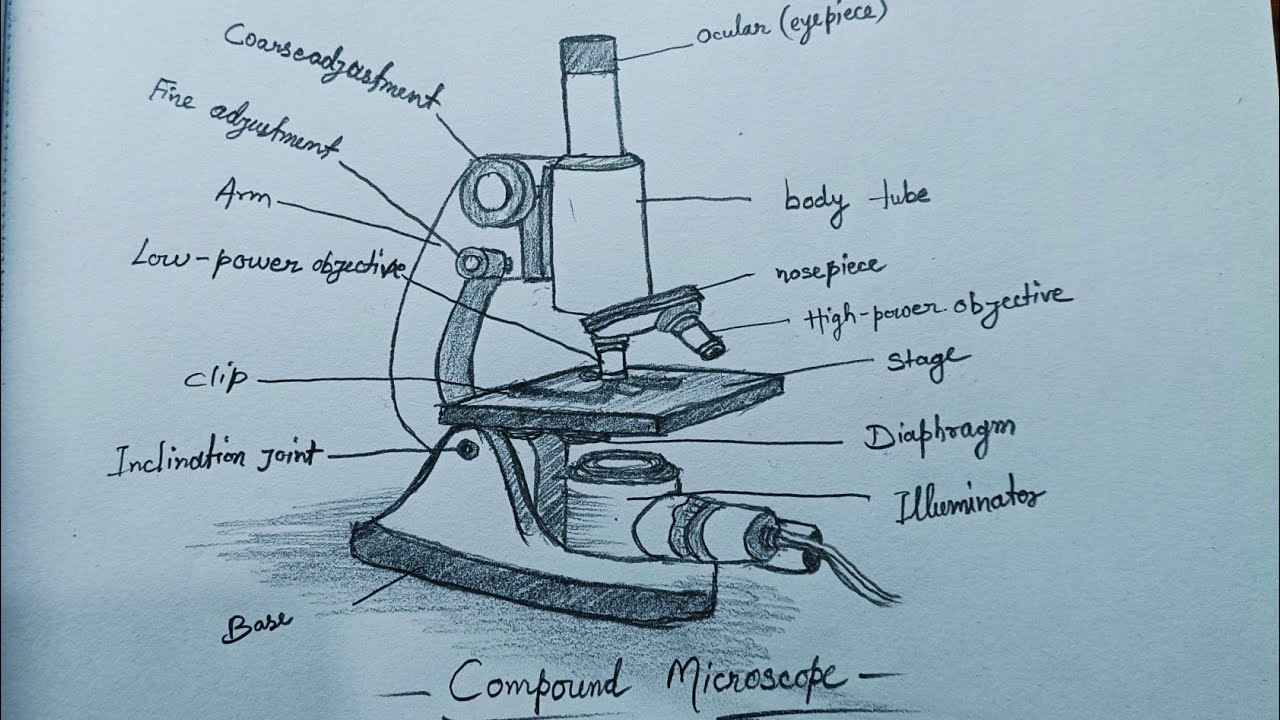 Ocular (eyepiece)
Coarseadjastment
Fine adjustment
Arm
body tube
Low-power objective
nosepiece
High-power objective
stage
clip
Diaphragm
Inclination joint
Illuminator
Base
— Compound Microscope —